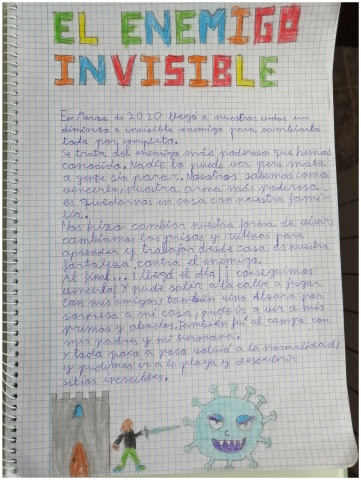 EL ENEMIGO
INVISIBLE
En Marzo de 2020 llegó a nuestras vidas un
diminuto e invisible enemigo para cambiarlo
todo por completo.
Se trata del enemigo más poderoso que hemos
conocido. Nadie lo puede ver pero mata
a gente sin parar. Nosotros sabemos como
vencerlo, nuestra arma más poderosa
es quedarnos en casa con nuestra fami-
lia.
Nos hizo cambiar nuestra forma de vivir,
cambiamos las prisas y rutinas para
aprender y trabajar desde casa, es nuestra
fortaleza contra el enemigo.
Al final... ¡llegó el día! ¡conseguimos
vencerlo! Y pude salir a la calle a jugar
con mis amigos, también vino Álvaro por
sorpresa a mi casa, pude ir a ver a mis
primos y abuelos. También fuí al campo con
mis padres y mi hermana.
Y todo poco a poco volvió a la normalidad
y pudimos ir a la playa y descubrir
sitios increíbles.